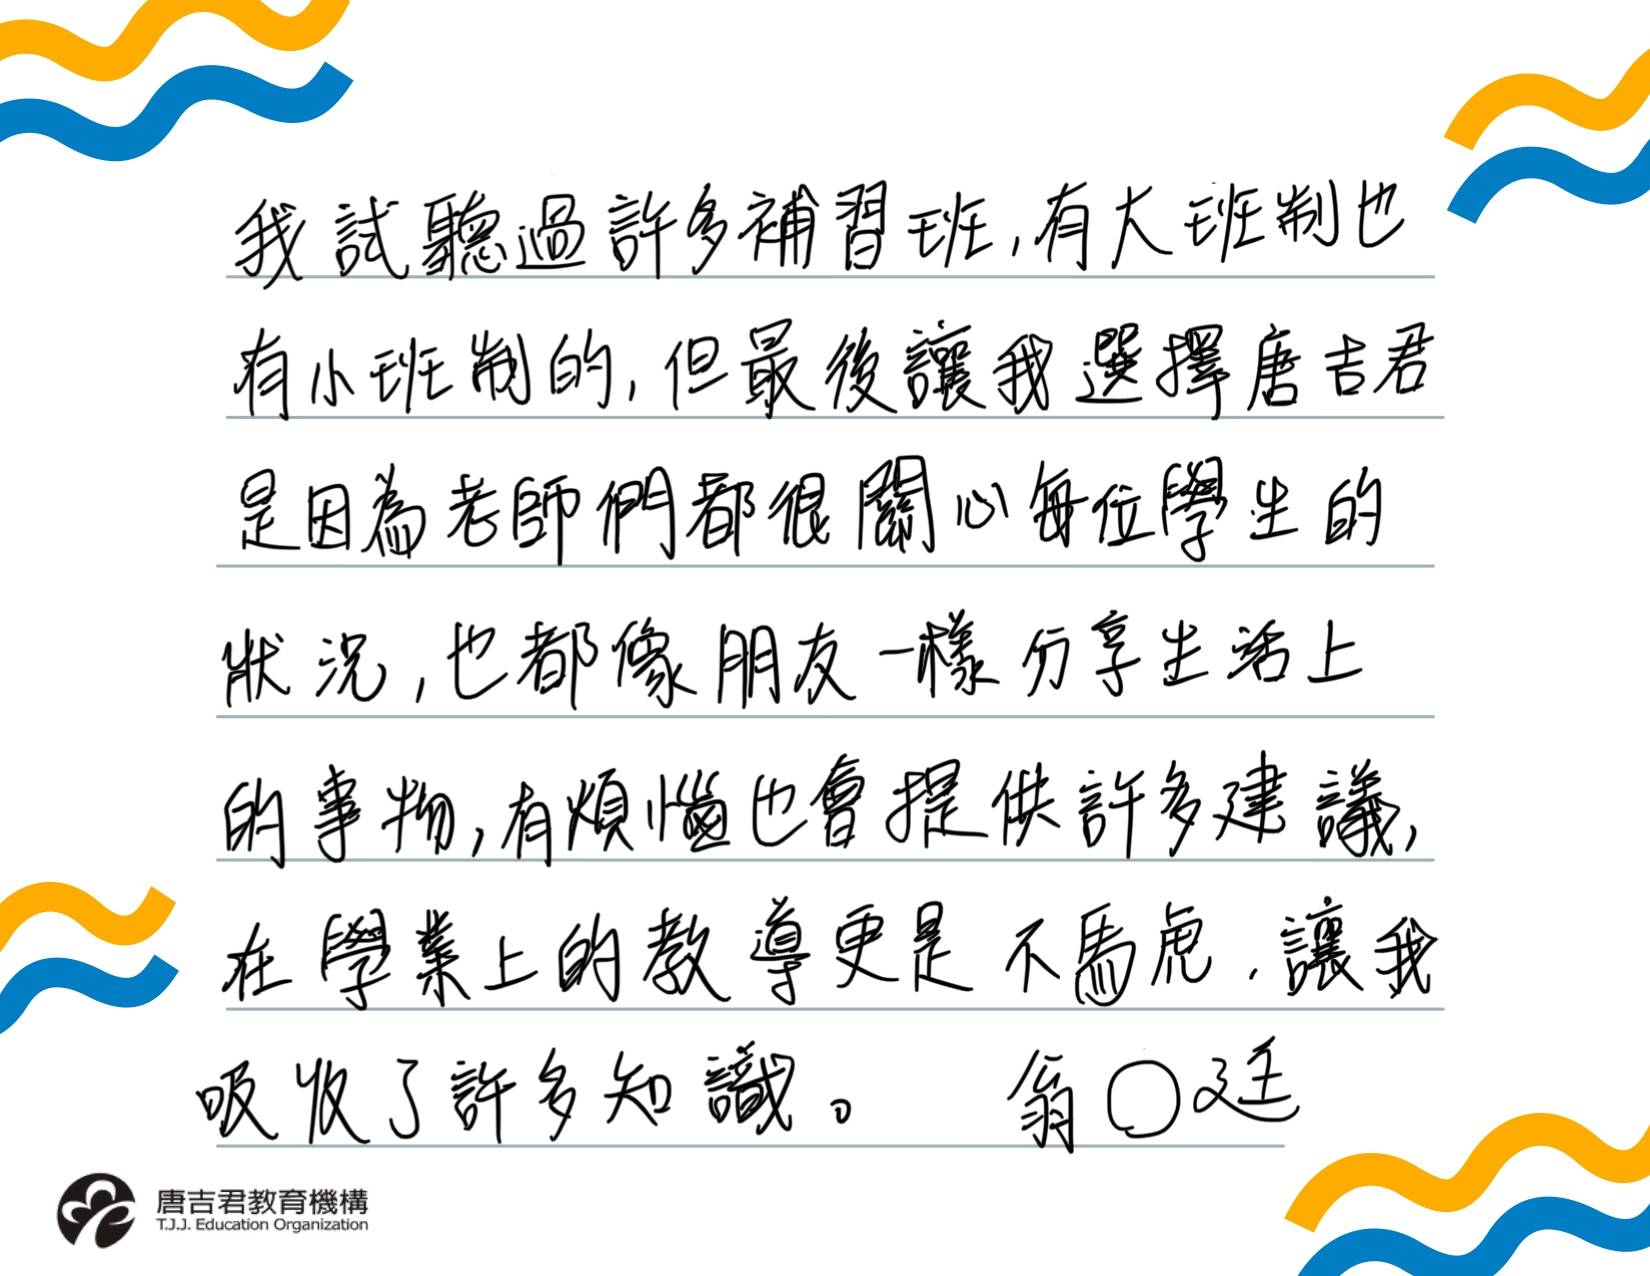 我試聽過許多補習班,有大班制也
有小班制的,但最後讓我選擇唐吉君
是因為老師們都很關心每位學生的
狀況,也都像朋友一樣分享生活上
的事物,有煩惱也會提供許多建議,
在學業上的教導更是不馬虎,讓我
吸收了許多知識。 翁○廷
唐吉君教育機構
T.J.J. Education Organization